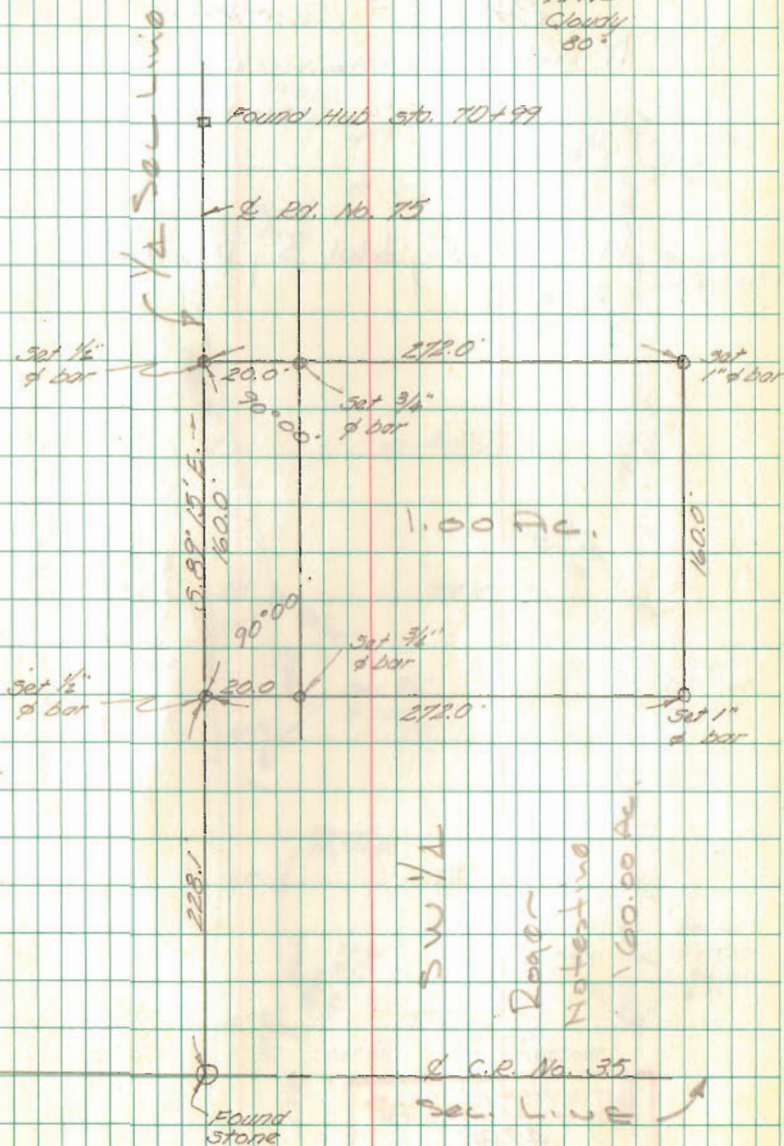 Cloudy
80°
1/4 Sec Line
Found Hub sta. 70+99
℄ Rd. No. 75
Set 1/2"
ø bar
20.0'
272.0'
Set
1" ø bar
Set 3/4"
ø bar
90°00'
S.89°15'E.
160.0'
1.00 Ac.
160.0'
90°00'
Set 3/4"
ø bar
Set 1/2"
ø bar
20.0
272.0'
Set 1"
ø bar
228.1'
SW 1/4
Roger
Notestine
160.00 Ac.
℄ C.R. No. 35
Sec. Line
Found
Stone